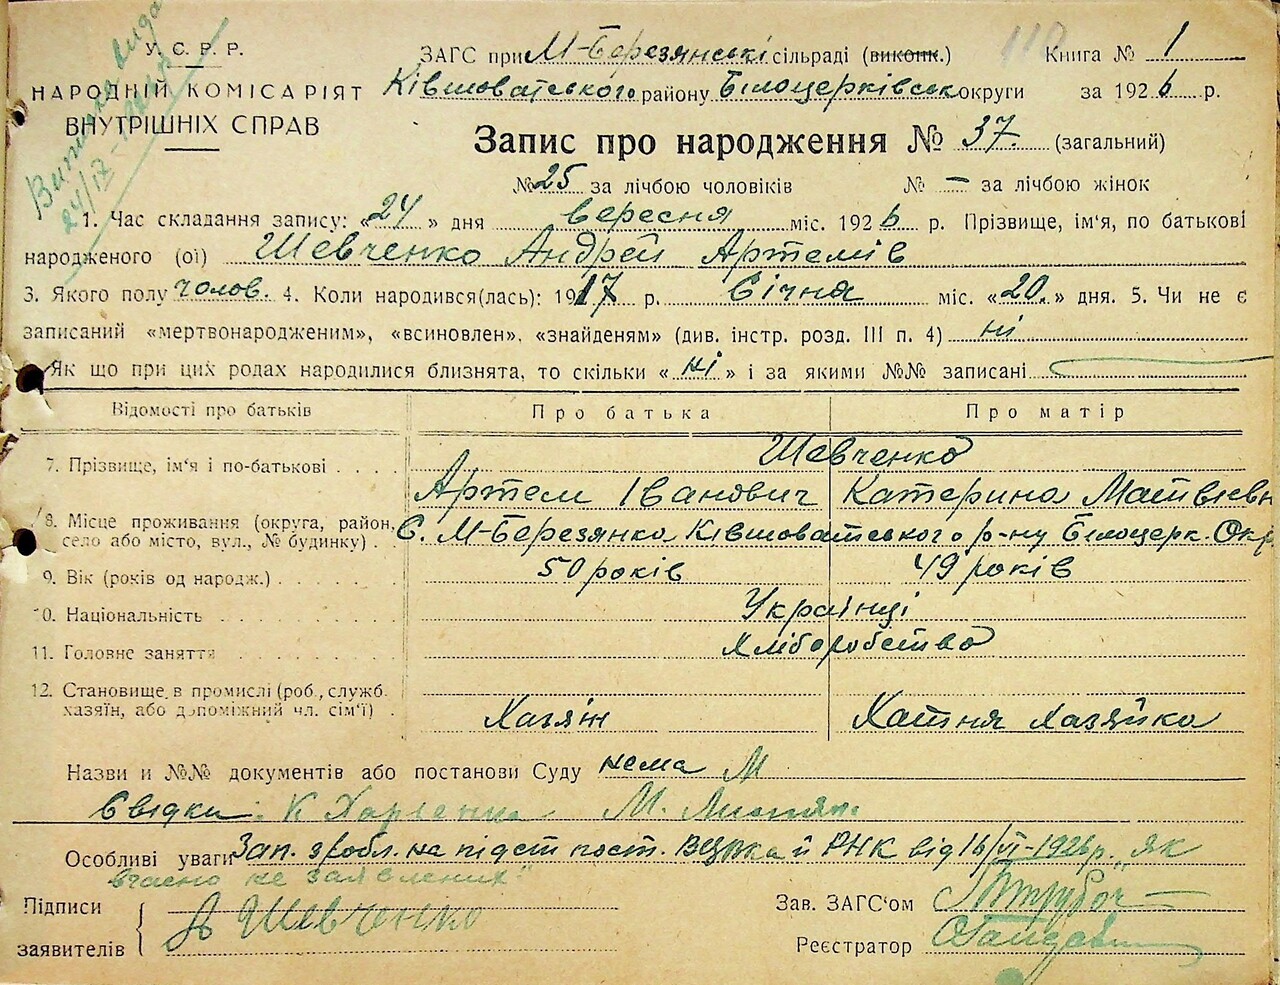 У. С. Р. Р.
НАРОДНІЙ КОМІСАРІЯТ
ВНУТРІШНІХ СПРАВ
ЗАГС при М-Березянські сільраді (виконк.) 110 Книга № 1
Ківшоватського району Білоцерківськ округи за 1926 р.
Запис про народження № 37. (загальний)
№ 25 за лічбою чоловіків № — за лічбою жінок
24/IX
1. Час складання запису: «24» дня вересня міс. 1926 р. Прізвище, ім'я, по батькові
народженого (ої) Шевченко Андрей Артемів
3. Якого полу чолов. 4. Коли народився(лась): 1917 р. Січня міс. «20.» дня. 5. Чи не є
записаний «мертвонародженим», «всиновлен», «знайденям» (див. інстр. розд. III п. 4) ні
Як що при цих родах народилися близнята, то скільки «ні» і за якими №№ записані
Відомості про батьків Про батька Про матір
Шевченко
7. Прізвище, ім'я і по-батькові Артем Іванович Катерина Матвієвн
8. Місце проживання (округа, район, село або місто, вул., № будинку) С. М-Березянка Ківшоватського р-ну Білоцерк. Окр
9. Вік (років од народж.) 50 років 49 років
10. Національність Українці
11. Головне заняття Хліборобство
12. Становище в промислі (роб., служб.
хазяїн, або допоміжний чл. сім'ї) Хазяїн Хатня Хазяйка
Назви и №№ документів або постанови Суду нема
Свідки: К Харченко М.
Особливі уваги Зап. зробл. на підст пост. ВЦВКа й РНК від 16/VI-1926р. „як
вчасно не заявлених"
Підписи
заявителів А Шевченко
Зав. ЗАГС'ом
Реєстратор